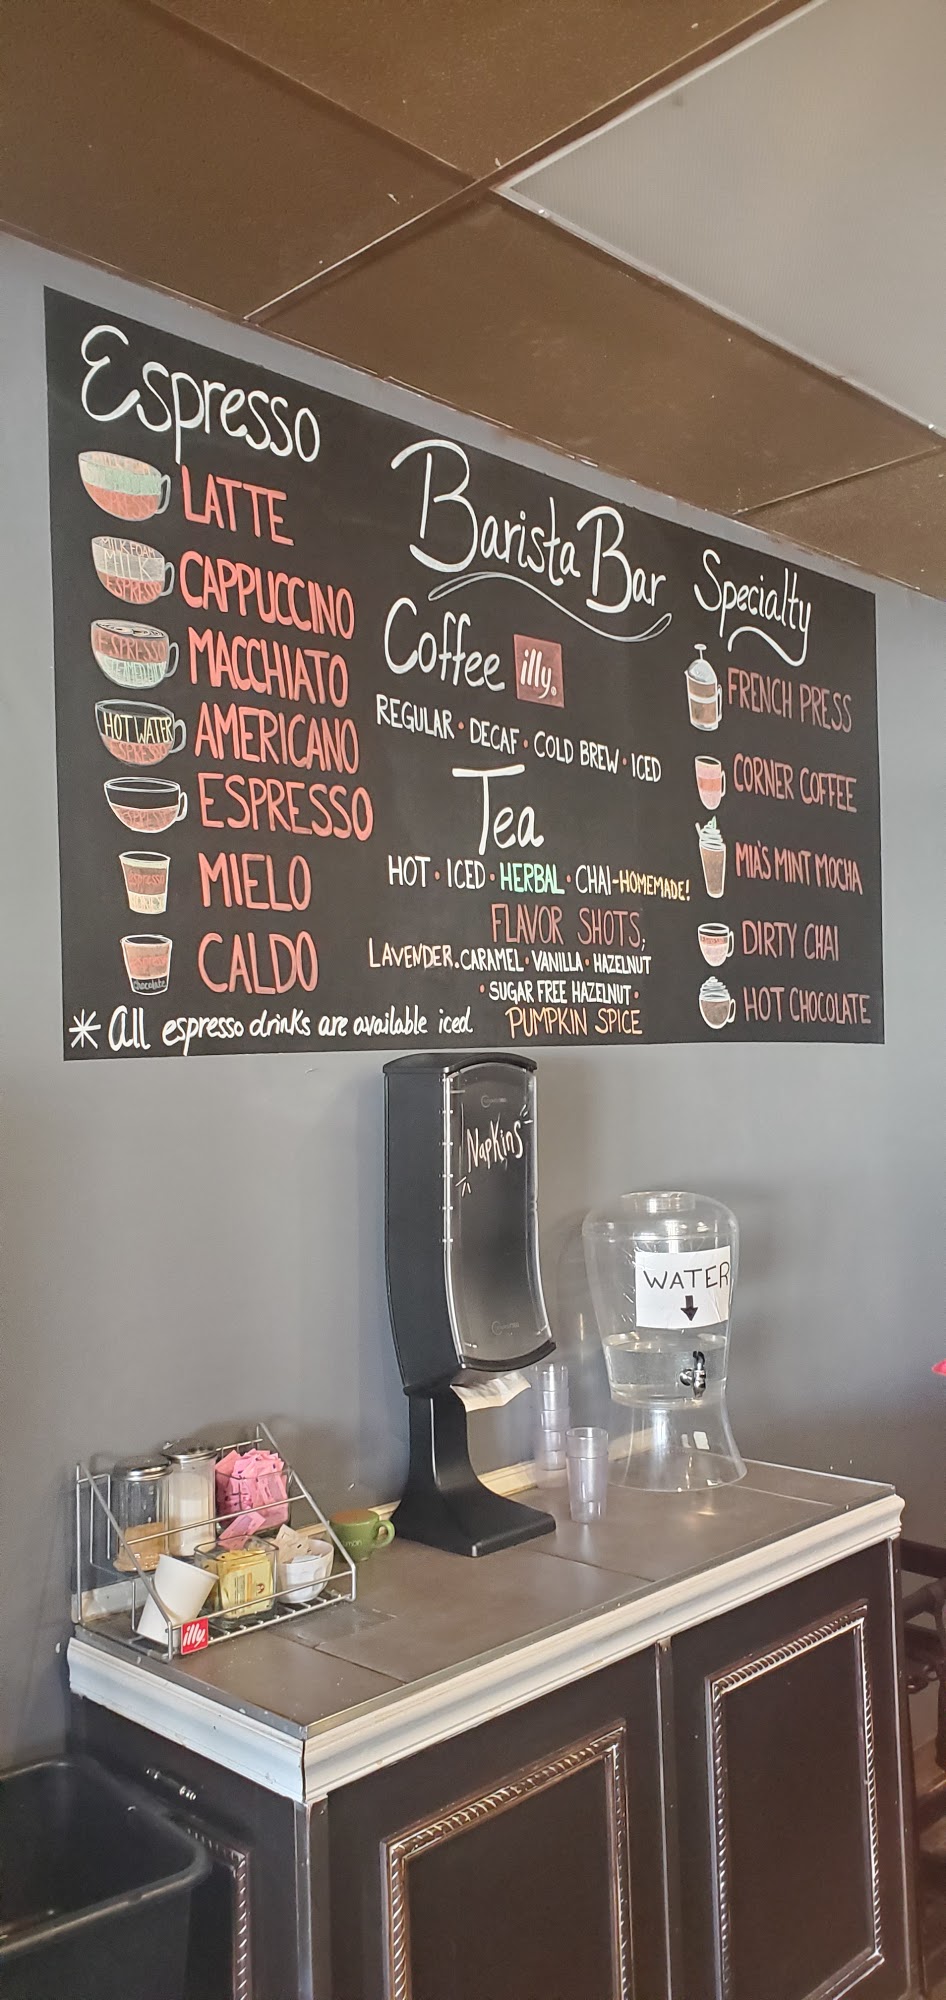 Espresso
LATTE
MILK FOAM
MILK
ESPRESSO
CAPPUCCINO
ESPRESSO
STEAMED MILK
MACCHIATO
HOT WATER
ESPRESSO
AMERICANO
ESPRESSO
ESPRESSO
espresso
MIELO
Chocolate
CALDO
* All espresso drinks are available iced
Barista Bar
Coffee illy
REGULAR • DECAF • COLD BREW • ICED
Tea
HOT • ICED • HERBAL • CHAI-HOMEMADE!
FLAVOR SHOTS,
LAVENDER.CARAMEL • VANILLA • HAZELNUT
• SUGAR FREE HAZELNUT •
PUMPKIN SPICE
Specialty
FRENCH PRESS
CORNER COFFEE
MIA'S MINT MOCHA
DIRTY CHAI
HOT CHOCOLATE
Napkins
WATER
illy